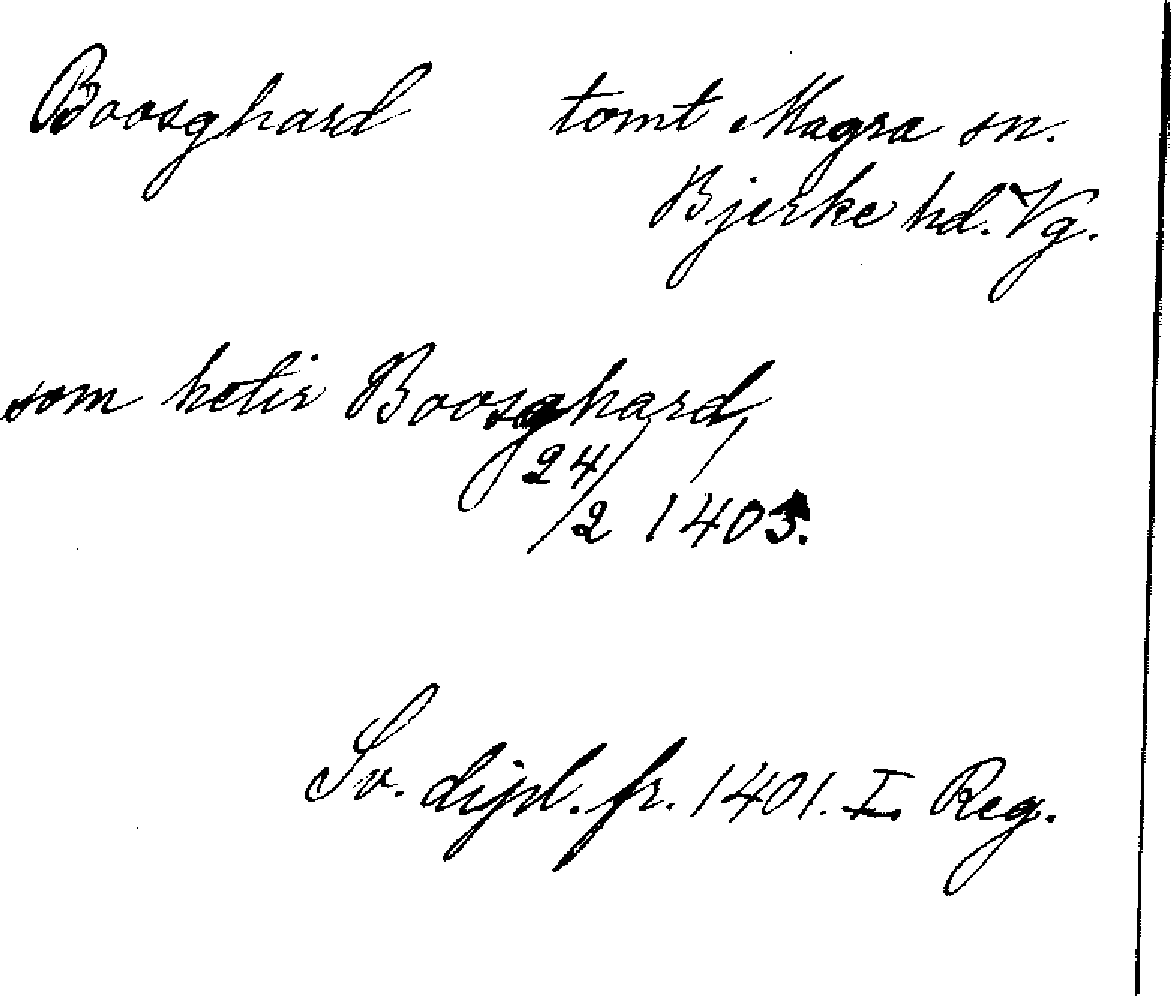 Boosghard tomt Magra sn.
Bjerke hd. Vg.
som hetir Boosghard,
24/2 1403.
Sv. dipl. fr. 1401. I. Reg.